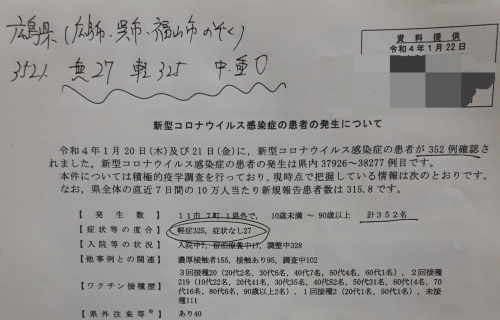 広島県(広島市、呉市、福山市のぞく)
352人 無27 軽325 中・重0
資料提供
令和4年1月22日
新型コロナウイルス感染症の患者の発生について
令和4年1月20日(木)及び21日(金)に、新型コロナウイルス感染症の患者が352例確認さ
れました。新型コロナウイルス感染症の患者の発生は県内37926~38277例目です。
本件については積極的疫学調査を行っており、現時点で把握している情報は次のとおりです。
なお、県全体の直近7日間の10万人当たり新規報告患者数は315.8です。
【発生数】 11市7町1県外で、10歳未満~90歳以上 計352名
【症状等の度合】 軽症325、症状なし27
【入院等の状況】 入院中7、宿泊療養中17、調整中328
【他事例との関連】 濃厚接触者155、接触あり95、調査中102
3回接種20(20代2名、30代6名、40代7名、50代4名、60代1名)、2回接種
【ワクチン接種歴】 219(10代22名、20代41名、30代35名、40代52名、50代31名、60代14名、70
代16名、80代6名、90歳以上2名)、1回接種2(20代1名、50代1名)、未接
種111
【県外往来等※】 あり40